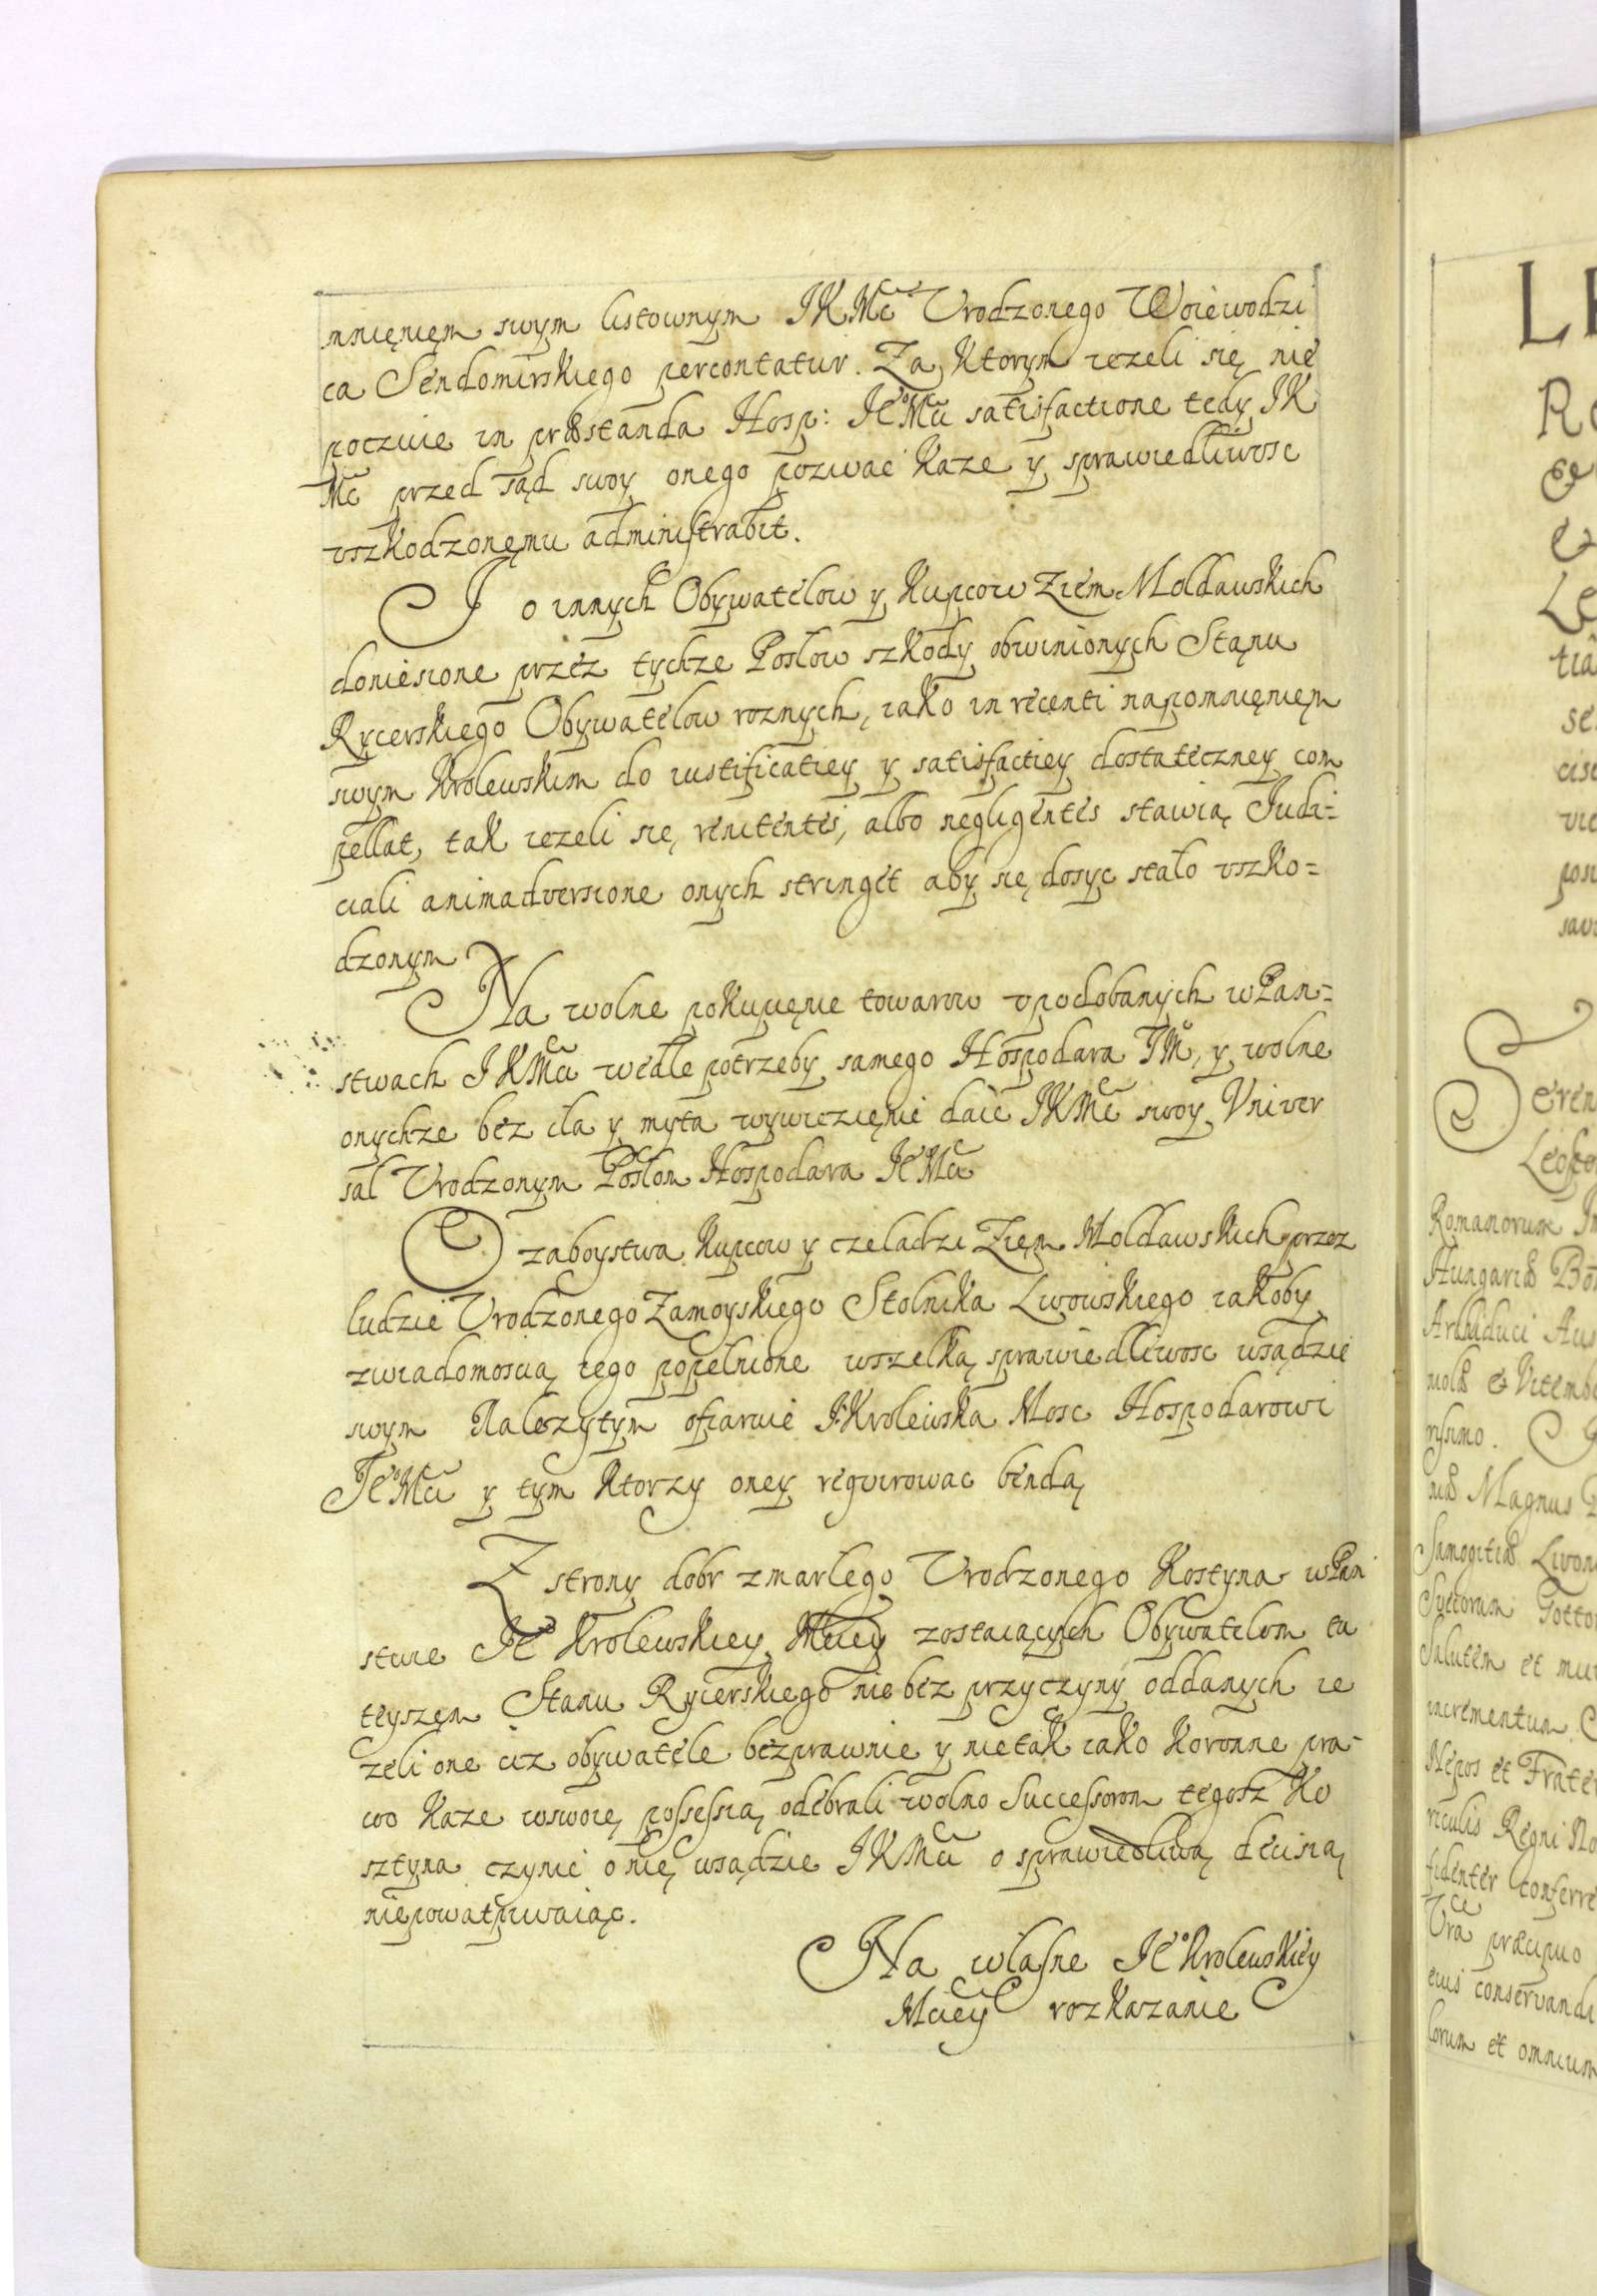 mnięnięm swym listownym JKMć Vrodzonego Woiewodzi
ca Sendomirskiego percontatur. Za ktorym iezeli się nie
poczuie in præstanda Hosp: JeºMći satisfactione tedy JK
Mć przed sąd swoy onego pozwac kaze y sprawiedliwosc
vszkodzonęmu administrabit.
J o innych Obywatelow y kupcow Ziem Moldawskich
doniesione przez tychze Posłow szkody obwinionych Stąnu
Rycerskiego Obywatelow roznych, iako in recenti napomnięnięm
swym Krolewskim do iustificatiey y satisfactiey dostateczney com
pellat, tak iezeli się renitentes, albo negligentes stawią Judi-
ciali animadversione onych stringet aby się dosyc stało vszko=
dzonym
Na wolne pokupięnie towarow vpodobanych w Pan=
stwach JKMći wedle potrzeby samego Hospodara JMº, y wolne
onychze bez cła y myta wywiezięnie daie JKMć swoy Vniver
sal Vrodzonym Posłom Hospodara JeºMći
O zaboystwa kupcow y czeladzi Zięm Moldawskich przez
ludzie Vrodzonego Zamoyskiego Stolnika Lwowskiego iakoby
zwiadomoscią iego popełnione wszelką sprawiedliwosc wsądzie
swym Nalezytym ofiaruie J.Krolewska Mosc Hospodarowi
JeºMći y tym ktorzy oney reqvirowac bendą
Z strony dobr zmarłego Vrodzonego Kostyna w Pan
stwie Jeº Krolewskiey Mciey zostaiących Obywatelom tu
teyszęm Stanu Rycerskiego nie bez przyczyny oddanych ie
zeli one ciz obywatele bezprawnie y nietak iako koronne pra-
wo kaze wswoię possessią odebrali wolno Successorom tegosz Ko
sztyna czynic o nię wsądzie JKMći o sprawiedliwą decisią
niepowatpiwaiąc.
Na własne Jeº Krolewskiey
Mciey rozkazanie
LE
Ro
&
&
Le
tia
se
cis
vic
pon
sav
Seren
Leopo
Romanorum Im
Hungariæ Bo
Archiduci Aus
molæ & Vitemb
rissimo.
niæ Magnus
Samogitiæ Livon
Svecorum Gotto
Salutem et mu
incrementum
Nepos et Frater
riculis Regni No
fidenter conferre
Vrã præcipuo
eius conservandi
lorum et omnium